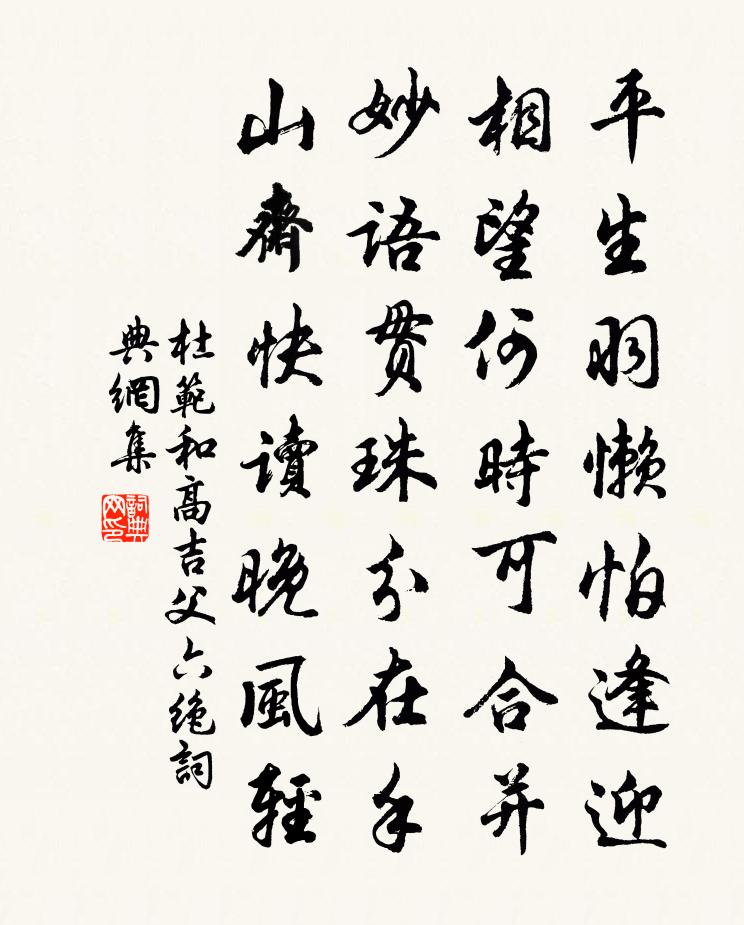 平生朋懶怕逢迎
相望何時可合并
妙語貫珠分在手
山齋快讀晚風輕
杜範和高吉父六絕詞
典網集
詞典
网印